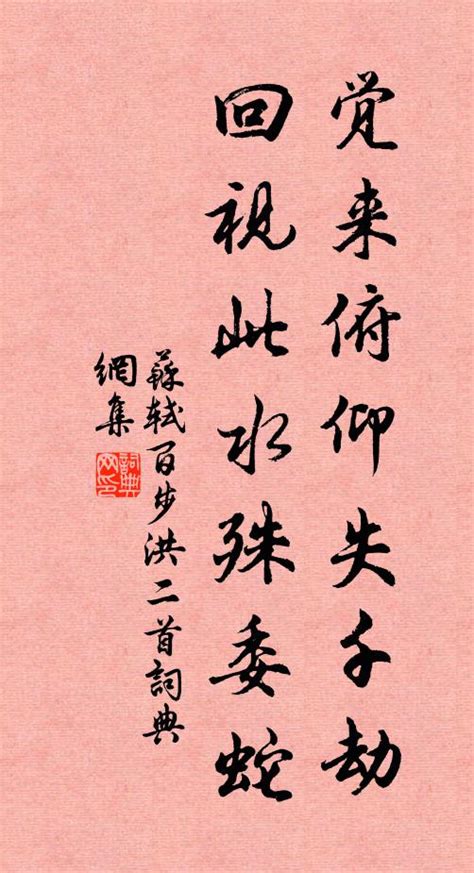 觉来俯仰失千劫
回视此水殊委蛇
蘇轼百步洪二首詞典
網集
詞典网印